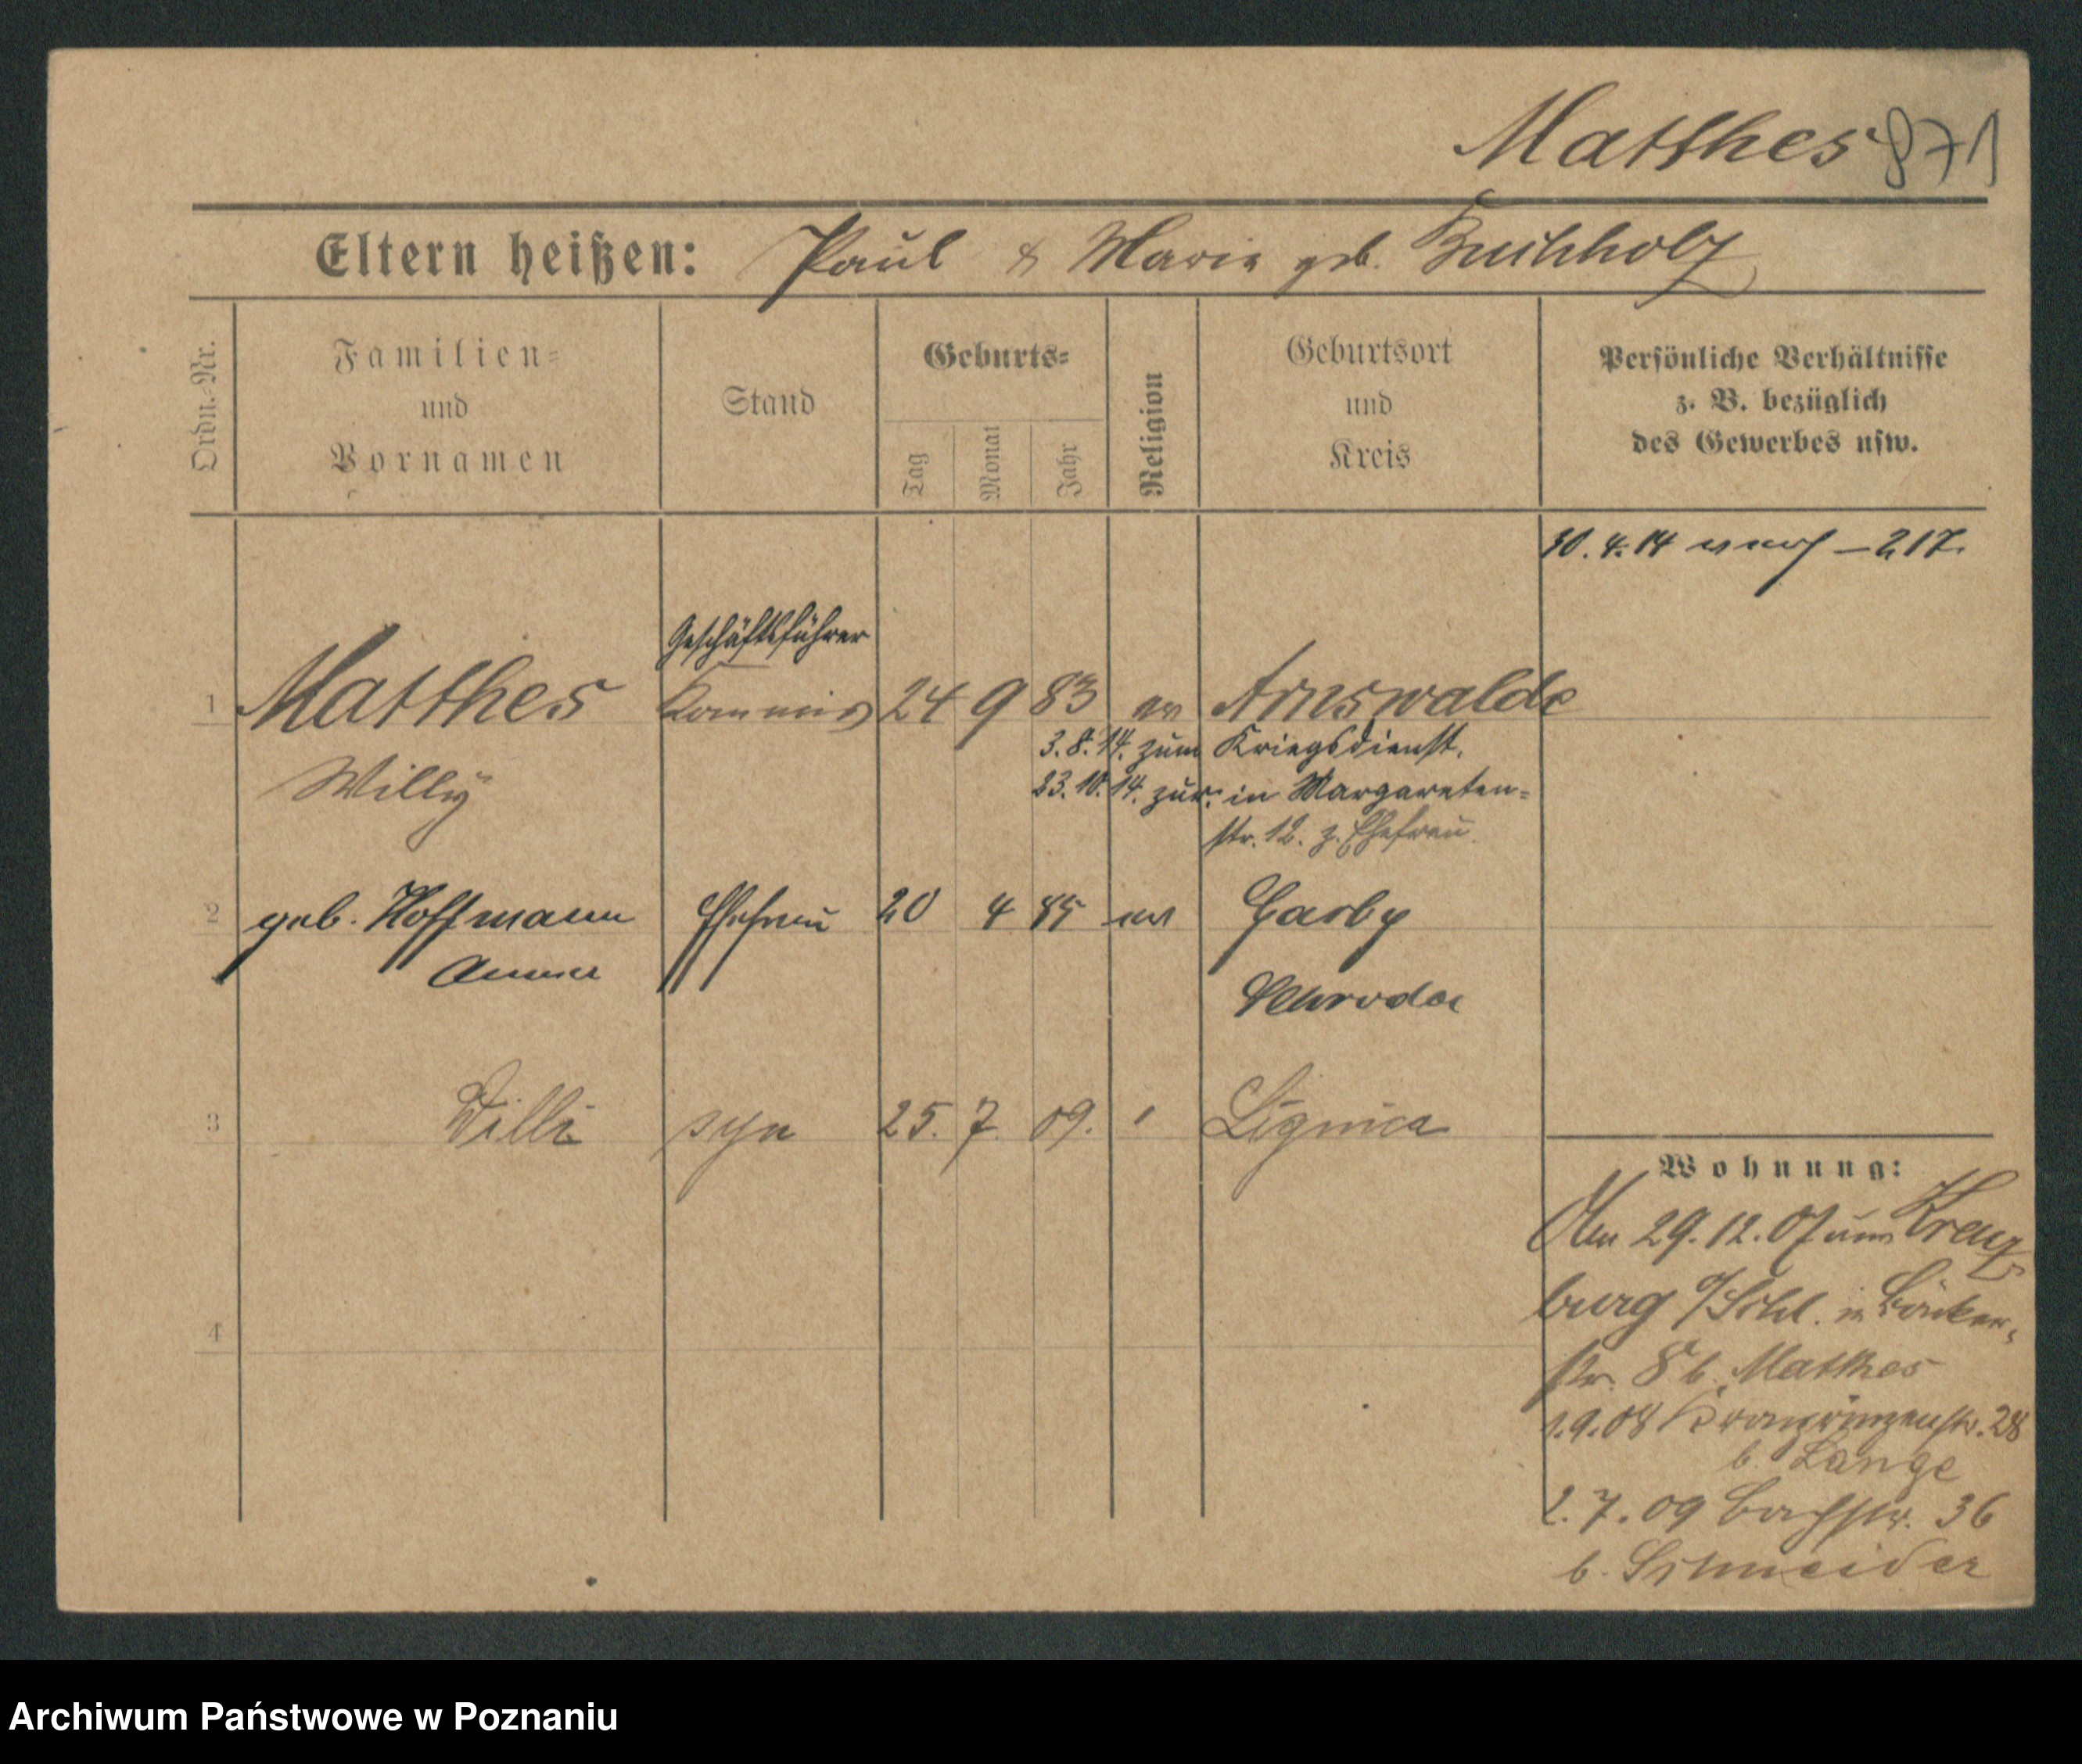 Matthes 871
Eltern heißen: Paul & Marie geb. Buchholz
Ordn.-Nr.
Familien-
und
Vornamen
Stand
Geburts-
Tag
Monat
Jahr
Religion
Geburtsort
und
Kreis
Persönliche Verhältnisse
z. B. bezüglich
des Gewerbes usw.
30.4.14 - 217.
Geschäftsführer
1 Matthes Kommis 24 9 83 ev Arnswalde
3.8.14. zum Kriegsdienst.
Willy
23.10.14. zur. in Margareten-
str. 12. z. Ehefrau
2 geb. Hoffmann Ehefrau 20 4 85 ev
Anna
Schroda
3 Willi syn 25. 7. 09. " Lignica
4
Wohnung:
Am 29.12.07 von Kreuz-
burg O/Schl. in Bäcker-
str. 8 b. Matthes
1.9.08 Kronprinzenstr. 28
b. Lange
2.7.09 Bachstr. 36
b. Schneider
Archiwum Państwowe w Poznaniu